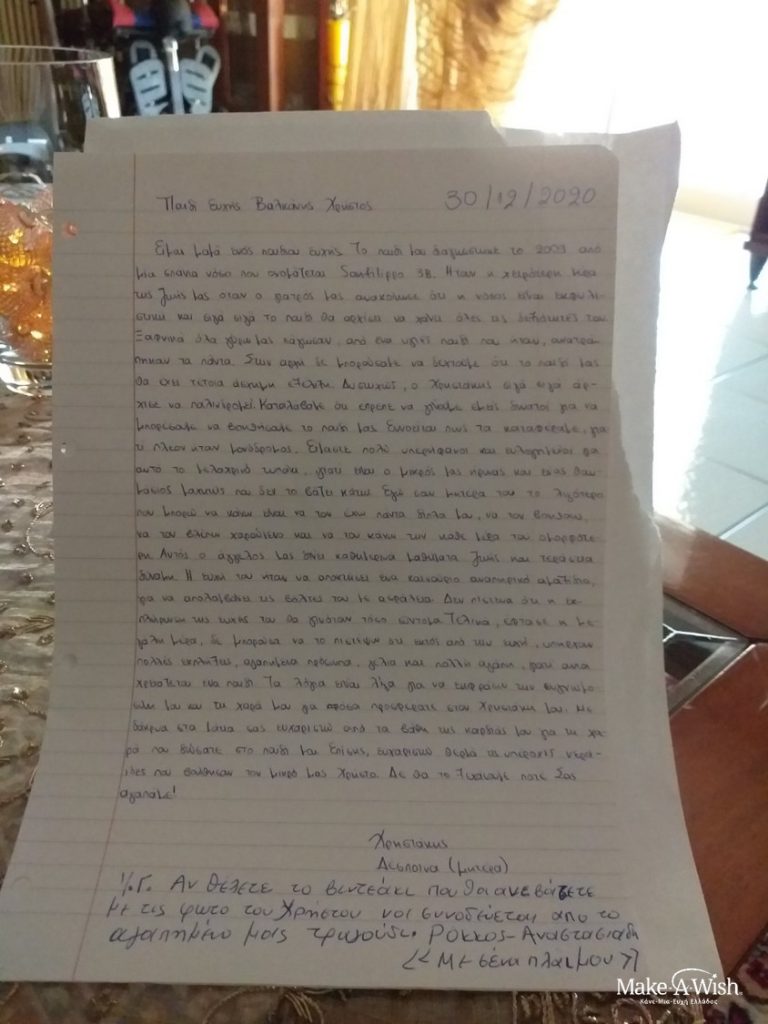 Παιδί ευχής Βαλκάνης Χρήστος 30/12/2020
Είμαι μαμά ενός παιδιού ευχής. Το παιδί μου διαγνώστηκε το 2009 από
μια σπάνια νόσο που ονομάζεται Sanfilippo 3B. Ήταν η χειρότερη μέρα
της ζωής μας όταν ο γιατρός μας ανακοίνωσε ότι η νόσος είναι εκφυλι-
στική και σιγά σιγά το παιδί θα αρχίσει να χάνει όλες τις δεξιότητές του.
Ξαφνικά όλα γύρω μας πάγωσαν, από ένα υγιές παιδί που ήταν, ανατρά-
πηκαν τα πάντα. Στην αρχή δε μπορούσαμε να δεχτούμε ότι το παιδί μας
θα έχει τέτοια άσχημη εξέλιξη. Δυστυχώς, ο Χρηστάκης σιγά σιγά άρ-
χισε να παλινδρομεί. Καταλάβαμε ότι έπρεπε να γίνουμε εμείς δυνατοί για να
μπορέσουμε να βοηθήσουμε το παιδί μας. Εννοείται πως τα καταφέραμε, για-
τί πλέον ήταν μονόδρομος. Είμαστε πολύ υπερήφανοι και ευλογημένοι για
αυτό το μελαχρινό τυπάκι, γιατί είναι ο μικρός μας ήρωας και ένας θαυ-
μάσιος μαχητής που δεν το βάζει κάτω. Εγώ σαν μητέρα του το λιγότερο
που μπορώ να κάνω είναι να τον έχω πάντα δίπλα μου, να τον βοηθάω,
να τον βλέπω χαρούμενο και να του κάνω την κάθε μέρα του ομορφότε-
ρη. Αυτός ο άγγελος μας δίνει καθημερινά μαθήματα ζωής και τεράστια
δύναμη. Η ευχή του ήταν να αποκτήσει ένα καινούριο αναπηρικό αμαξίδιο,
για να απολαμβάνει τις βόλτες του με ασφάλεια. Δεν πίστευα ότι η εκ-
πλήρωση της ευχής του θα γινόταν τόσο σύντομα. Τελικά, έφτασε η με-
γάλη μέρα, δε μπορούσα να το πιστέψω ότι εκτός από την ευχή, υπήρχαν
πολλές εκπλήξεις, αγαπημένα πρόσωπα, γέλια και πολλή αγάπη, γιατί αυτά
χρειάζεται ένα παιδί. Τα λόγια είναι λίγα για να εκφράσω την ευγνωμο-
σύνη μου και τη χαρά μου για όσα προσφέρατε στον Χρηστάκη μου. Με
δάκρυα στα μάτια σας ευχαριστώ από τα βάθη της καρδιάς μου για τη χα-
ρά που δώσατε στο παιδί μου. Επίσης, ευχαριστώ θερμά τις υπέροχες νεράι-
δες που βοήθησαν τον μικρό μας Χρήστο. Δε θα το ξεχάσουμε ποτέ. Σας
αγαπάμε!
Χρηστάκης
Δέσποινα (μητέρα)
Υ.Γ. Αν θέλετε το βιντεάκι που θα ανεβάσετε
με τις φωτο του Χρήστου να συνοδεύεται από το
αγαπημένο μας τραγούδι. Ρόκκος-Αναστασιάδη
<<Με σένα πλάι μου>>
Make-A-Wish
Κάνε-Μια-Ευχή Ελλάδος